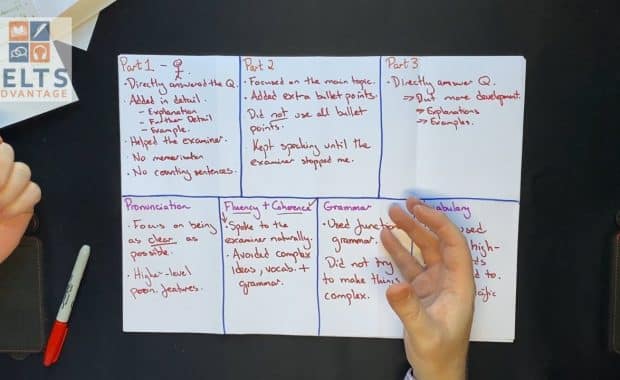 ELTS
DVANTAGE
Part 1 - Q
• Directly answered the Q.
• Added in detail.
- Explanation
- Further Detail
- Example.
• Helped the examiner.
• No memorisation
• No counting sentences.
Part 2
• Focused on the main topic.
• Added extra bullet points.
Did not use all bullet
points.
• Kept speaking until the
examiner stopped me.
Part 3
• Directly answer Q.
⇒ But more development.
⇒ Explanations
⇒ Examples.
Pronunciation
• Focus on being
as clear as
possible.
• Higher-level
pron. features.
Fluency + Coherence
• Spoke to the
examiner naturally.
• Avoided complex
ideas, vocab. +
grammar.
Grammar
• Used
grammar.
Did not try
to make things
complex.
used
high-
to.